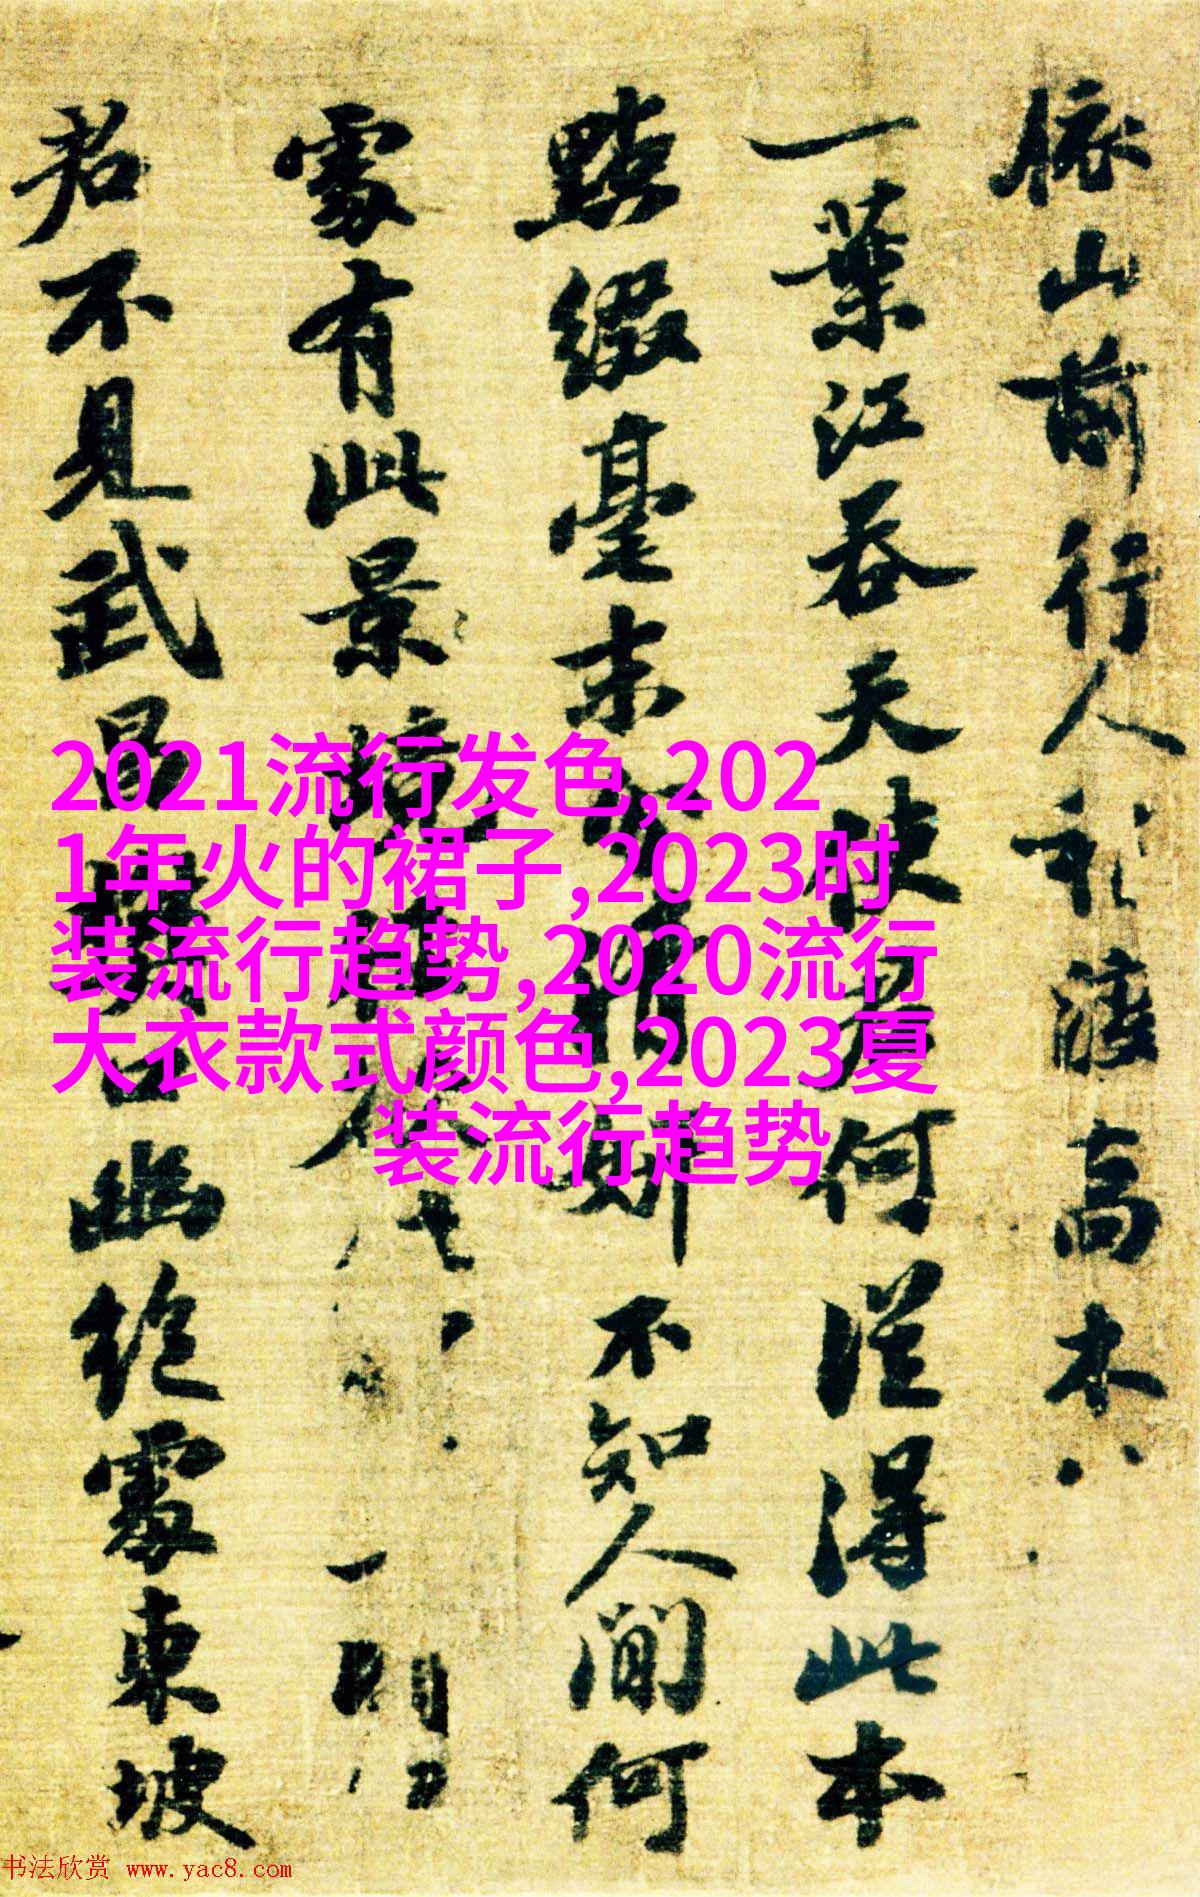 依山前行人稍渡高木
一葉江吞天使君何從得此本
點綴毫末分清妍不知人間何
處有此景
君不見武昌樊口幽絕處東坡
2021流行发色,202
1年火的裙子,2023时
装流行趋势,2020流行
大衣款式颜色,2023夏
装流行趋势
书法欣赏 www.yac8.com